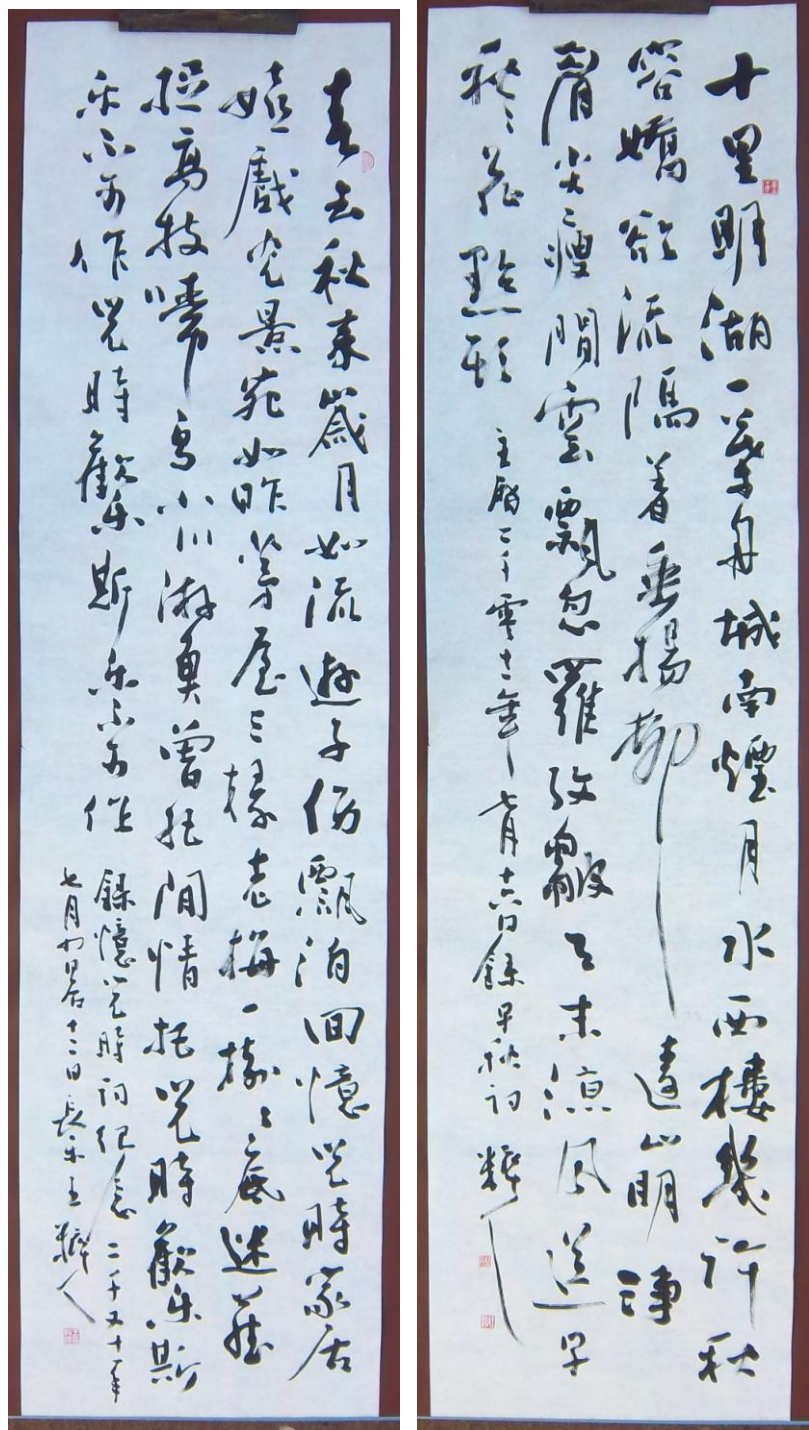 十里明湖一葉舟城南煙月水西樓幾許秋
容嬌欲流隔着垂揚柳遠山明淨
眉尖〻瘦閒雲飄忽羅紋皺天末涼風送早
秋〻花點頭
主曆二千零十一年七月十六日錄早秋詞
春去秋來歲月如流遊子傷飄泊回憶兒時家居
嬉戲光景宛如昨茅屋三椽老梅一樹〻底迷藏
捉高枝啼鳥小川游魚曾把閒情托兒時歡樂斯
樂不可作兒時歡樂斯樂不可作
錄憶兒時詞紀念二千又十一年
七月十二日長樂王